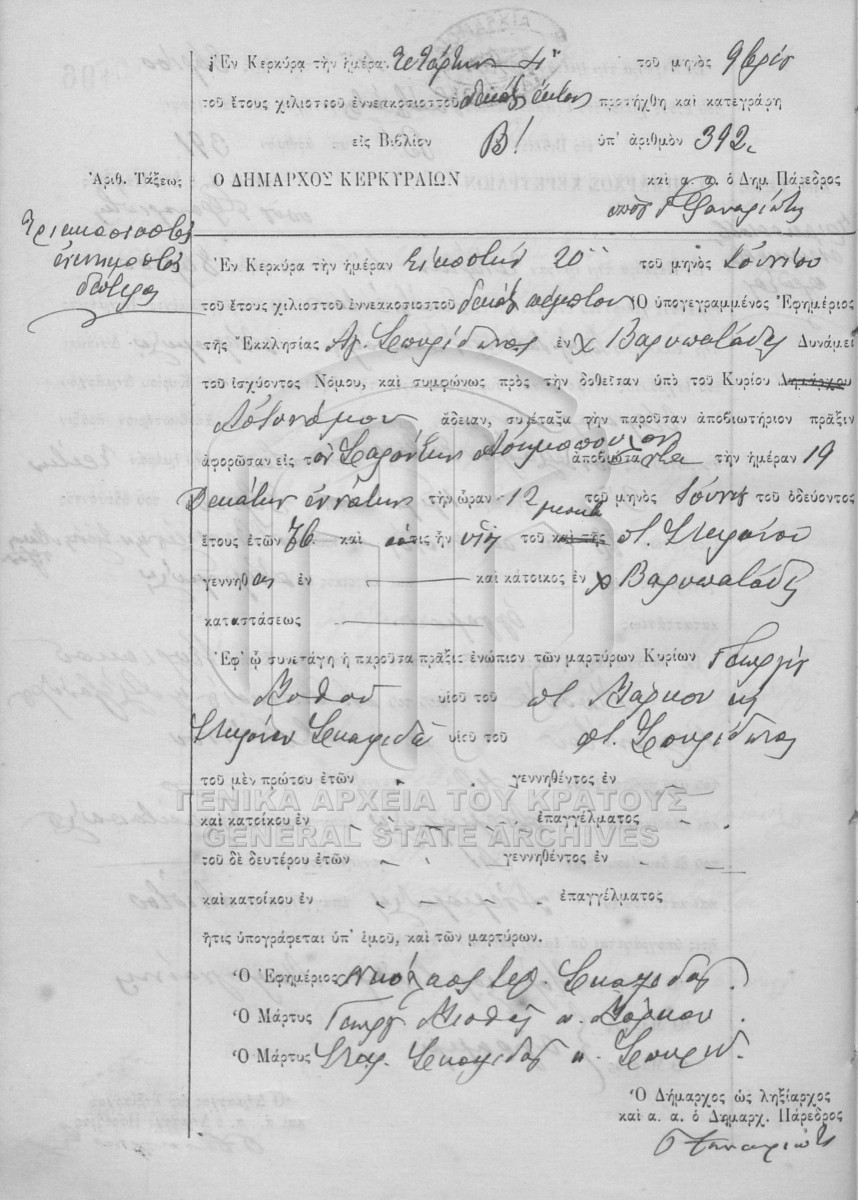 Ἐν Κερκύρᾳ τὴν ἡμέρα. τετάρτην 4 τοῦ μηνὸς 9βρίου
τοῦ ἔτους χιλιοστοῦ ἐννεακοσιοστοῦ δεκάτου ἕκτου προσήχθη καὶ κατεγράφη
εἰς Βιβλίον Β! ὑπ' ἀριθμὸν 392
Ἀριθ. Τάξεως Ὁ ΔΗΜΑΡΧΟΣ ΚΕΡΚΥΡΑΙΩΝ καὶ α. α. ὁ Δημ. Πάρεδρος
Τριακοσιοστὸς
ἐνενηκοστὸς
δεύτερος
Ἐν Κερκύρᾳ τὴν ἡμέραν εἰκοστὴν 20 τοῦ μηνὸς Ἰουνίου
τοῦ ἔτους χιλιοστοῦ ἐννεακοσιοστοῦ δεκάτου πέμπτου Ὁ ὑπογεγραμμένος Ἐφημέριος
τῆς Ἐκκλησίας Ἁγ. Σπυρίδωνος ἐν χ Βαρυπατάδες Δυνάμει
τοῦ ἰσχύοντος Νόμου, καὶ συμφώνως πρὸς τὴν δοθεῖσαν ὑπὸ τοῦ Κυρίου Δημάρχου
Ἀστυνόμου ἄδειαν, συνέταξα τὴν παροῦσαν ἀποβιωτήριον πρᾶξιν
ἀφορῶσαν εἰς τὸν Σαράντην ἀποβιώσαντα τὴν ἡμέραν 19
Δεκάτην ἐννάτην τὴν ὥραν 12 τοῦ μηνὸς Ἰουνίου τοῦ ὁδεύοντος
ἔτους ἐτῶν 76 καὶ ὅστις ἦν υἱὸς τοῦ καὶ τῆς π. Στεφάνου
γεννηθεὶς ἐν καὶ κάτοικος ἐν χ Βαρυπατάδες
καταστάσεως
Ἐφ' ᾧ συνετάγη ἡ παροῦσα πρᾶξις ἐνώπιον τῶν μαρτύρων Κυρίων Γεωργίου
υἱοῦ τοῦ π. Μάρκου κ
Στεφάνου Σκαφιδᾶ υἱοῦ τοῦ π. Σπυρίδωνος
τοῦ μὲν πρώτου ἐτῶν γεννηθέντος ἐν
ΓΕΝΙΚΑ ΑΡΧΕΙΑ ΤΟΥ ΚΡΑΤΟΥΣ
καὶ κατοίκου ἐν ἐπαγγέλματος
GENERAL STATE ARCHIVES
τοῦ δὲ δευτέρου ἐτῶν γεννηθέντος ἐν
καὶ κατοίκου ἐν ἐπαγγέλματος
ἥτις ὑπογράφεται ὑπ' ἐμοῦ, καὶ τῶν μαρτύρων.
Ὁ Ἐφημέριος Νικόλαος Ἱερ. Σκαφιδᾶς.
Ὁ Μάρτυς Γεωργ π. Μάρκου.
Ὁ Μάρτυς Στεφ. Σκαφιδᾶς π. Σπυριδ.
Ὁ Δήμαρχος ὡς ληξίαρχος
καὶ α. α. ὁ Δημαρχ. Πάρεδρος